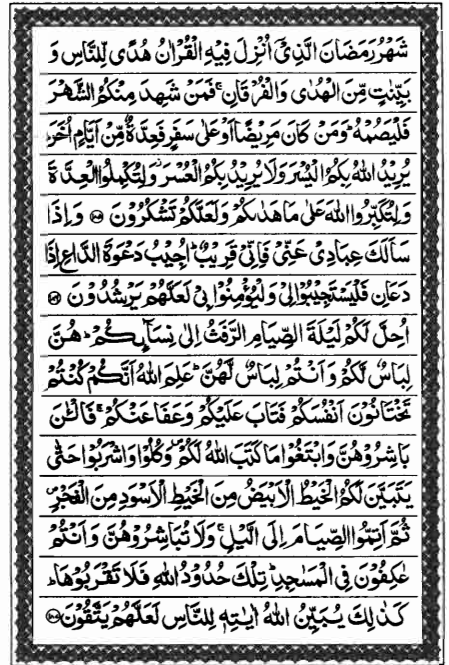 شَهْرُ رَمَضَانَ الَّذِيْٓ اُنْزِلَ فِيْهِ الْقُرْاٰنُ هُدًى لِّلنَّاسِ وَ
بَيِّنٰتٍ مِّنَ الْهُدٰى وَالْفُرْقَانِ ۚ فَمَنْ شَهِدَ مِنْكُمُ الشَّهْرَ
فَلْيَصُمْهُ ؕ وَمَنْ كَانَ مَرِيْضًا اَوْ عَلٰى سَفَرٍ فَعِدَّةٌ مِّنْ اَيَّامٍ اُخَرَ ؕ
يُرِيْدُ اللّٰهُ بِكُمُ الْيُسْرَ وَلَا يُرِيْدُ بِكُمُ الْعُسْرَ ۫ وَلِتُكْمِلُوا الْعِدَّةَ
وَلِتُكَبِّرُوا اللّٰهَ عَلٰى مَا هَدٰىكُمْ وَلَعَلَّكُمْ تَشْكُرُوْنَ ﴿۱۸۵﴾ وَاِذَا
سَاَلَكَ عِبَادِيْ عَنِّيْ فَاِنِّيْ قَرِيْبٌ ؕ اُجِيْبُ دَعْوَةَ الدَّاعِ اِذَا
دَعَانِ فَلْيَسْتَجِيْبُوْا لِيْ وَلْيُؤْمِنُوْا بِيْ لَعَلَّهُمْ يَرْشُدُوْنَ ﴿۱۸۶﴾
اُحِلَّ لَكُمْ لَيْلَةَ الصِّيَامِ الرَّفَثُ اِلٰى نِسَآئِكُمْ ؕ هُنَّ
لِبَاسٌ لَّكُمْ وَاَنْتُمْ لِبَاسٌ لَّهُنَّ ؕ عَلِمَ اللّٰهُ اَنَّكُمْ كُنْتُمْ
تَخْتَانُوْنَ اَنْفُسَكُمْ فَتَابَ عَلَيْكُمْ وَعَفَا عَنْكُمْ ۚ فَالْـٰٔنَ
بَاشِرُوْهُنَّ وَابْتَغُوْا مَا كَتَبَ اللّٰهُ لَكُمْ ۪ وَكُلُوْا وَاشْرَبُوْا حَتّٰى
يَتَبَيَّنَ لَكُمُ الْخَيْطُ الْاَبْيَضُ مِنَ الْخَيْطِ الْاَسْوَدِ مِنَ الْفَجْرِ ۪
ثُمَّ اَتِمُّوا الصِّيَامَ اِلَى الَّيْلِ ۚ وَلَا تُبَاشِرُوْهُنَّ وَاَنْتُمْ
عٰكِفُوْنَ فِي الْمَسٰجِدِ ؕ تِلْكَ حُدُوْدُ اللّٰهِ فَلَا تَقْرَبُوْهَا ؕ
كَذٰلِكَ يُبَيِّنُ اللّٰهُ اٰيٰتِهٖ لِلنَّاسِ لَعَلَّهُمْ يَتَّقُوْنَ ﴿۱۸۷﴾